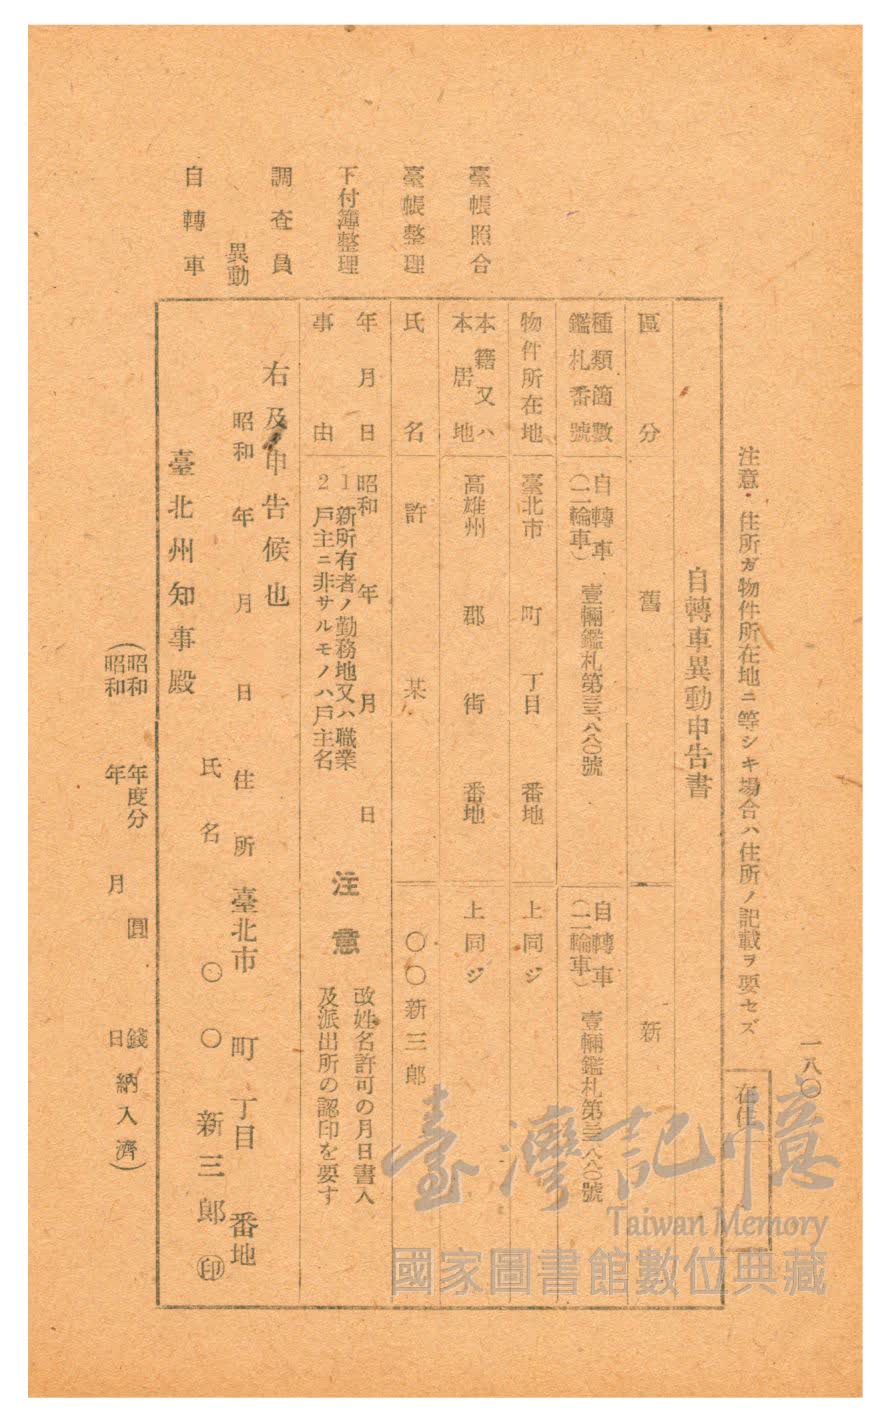 一八〇
在住
注意・住所ガ物件所在地ニ等シキ場合ハ住所ノ記載ヲ要セズ
自轉車異動申告書
區分 舊 新
種類箇數 自轉車 自轉車
鑑札番號 (二輪車) 壹輛鑑札第三三、八八〇號 (二輪車) 壹輛鑑札第三三八八〇號
物件所在地 臺北市 町 丁目 番地 上同ジ
本籍又ハ
本居地 高雄州 郡 街 番地 上同ジ
氏名 許 某 〇〇新三郎
年月日 昭和 年 月 日
事由 1 新所有者ノ勤務地又ハ職業
2 戶主ニ非サルモノハ戶主名
注意
改姓名許可の月日書入
及派出所の認印を要す
右及申告候也
昭和 年 月 日 住所 臺北市 町 丁目 番地
氏名 〇〇新三郎 ㊞
臺北州知事殿
(昭和 年度分 圓 錢
(昭和 年 月 日 納入濟)
臺帳照合
臺帳整理
下付簿整理
調査員
異動
自轉車
臺灣記憶
Taiwan Memory
國家圖書館數位典藏